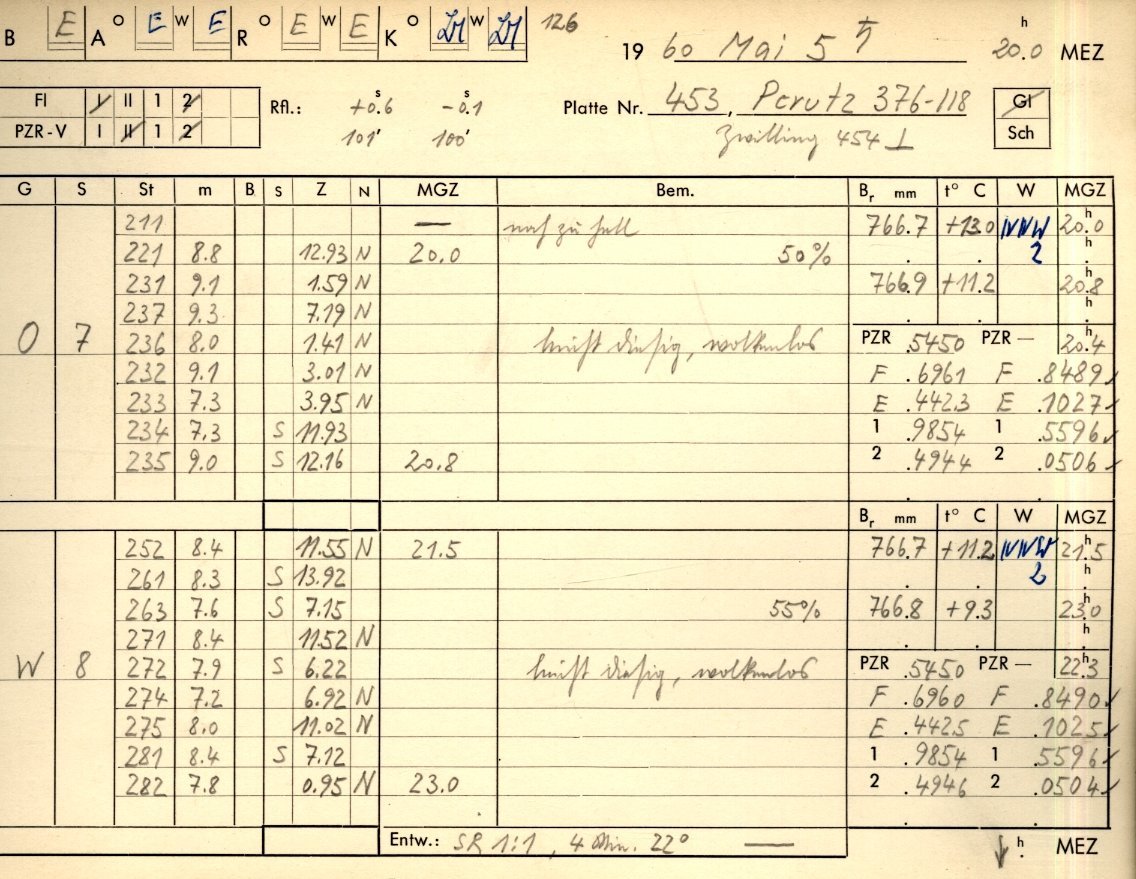 B E A O E W E R O E W E K O W 126
19 60 Mai 5 20.0 h MEZ
Fl I II 1 2 Rfl.: +0.6 s -0.1 s Platte Nr. 453, Perutz 376-118 Gl
PZR-V I II 1 2 101' 100' Zwilling 454 ⊥ Sch
G S St m B S Z N MGZ Bem. Br mm t° C W MGZ
211 — noch zu hell 766.7 +13.0 WNW 20.0 h
221 8.8 12.93 N 20.0 50% 2 h
231 9.1 1.59 N 766.9 +11.2 20.8 h
237 9.3 7.19 N h
O 7 236 8.0 1.41 N leicht diesig, wolkenlos PZR .5450 PZR — 20.4 h
232 9.1 3.01 N F .6961 F .8489
233 7.3 3.95 N E .4423 E .1027
234 7.3 S 11.93 1 .9854 1 .5596
235 9.0 S 12.16 20.8 2 .4944 2 .0506
Br mm t° C W MGZ
252 8.4 11.55 N 21.5 766.7 +11.2 WNW 21.5 h
261 8.3 S 13.92 2 h
263 7.6 S 7.15 55% 766.8 +9.3 23.0 h
271 8.4 11.52 N h
W 8 272 7.9 S 6.22 leicht diesig, wolkenlos PZR .5450 PZR — 22.3 h
274 7.2 6.92 N F .6960 F .8490
275 8.0 11.02 N E .4425 E .1025
281 8.4 S 7.12 1 .9854 1 .5596
282 7.8 0.95 N 23.0 2 .4946 2 .0504
Entw.: SR 1:1, 4 Min. 22° — h MEZ